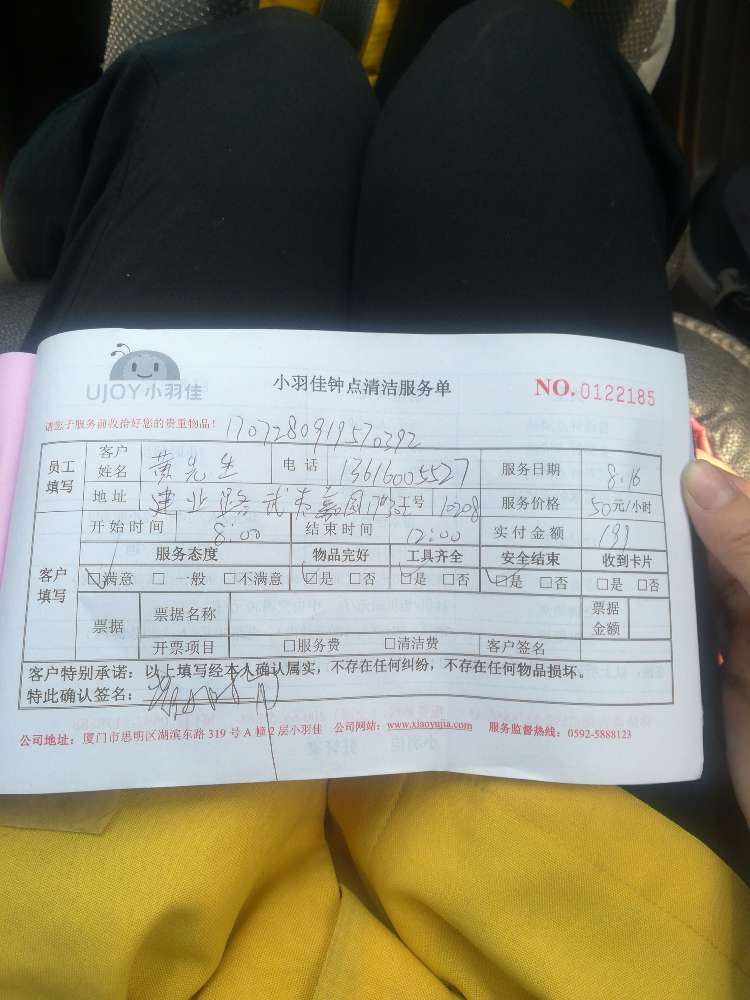 UJOY小羽佳
小羽佳钟点清洁服务单
NO.0122185
请您于服务前收拾好您的贵重物品！ 1707280919570392
员工填写 客户姓名 黄先生 电话 13616005527 服务日期 8.16
地址 建业路 园 号 1028 服务价格 50元/小时
客户填写 开始时间 8:00 结束时间 12:00 实付金额 191
服务态度 物品完好 工具齐全 安全结束 收到卡片
☑满意 □一般 □不满意 ☑是 □否 ☑是 □否 ☑是 □否 □是 □否
票据 票据名称 票据金额
开票项目 □服务费 □清洁费 客户签名
客户特别承诺：以上填写经本人确认属实，不存在任何纠纷，不存在任何物品损坏。
特此确认签名：
公司地址：厦门市思明区湖滨东路 319 号 A 幢 2 层小羽佳 公司网站：www.xiaoyujia.com 服务监督热线：0592-5888123